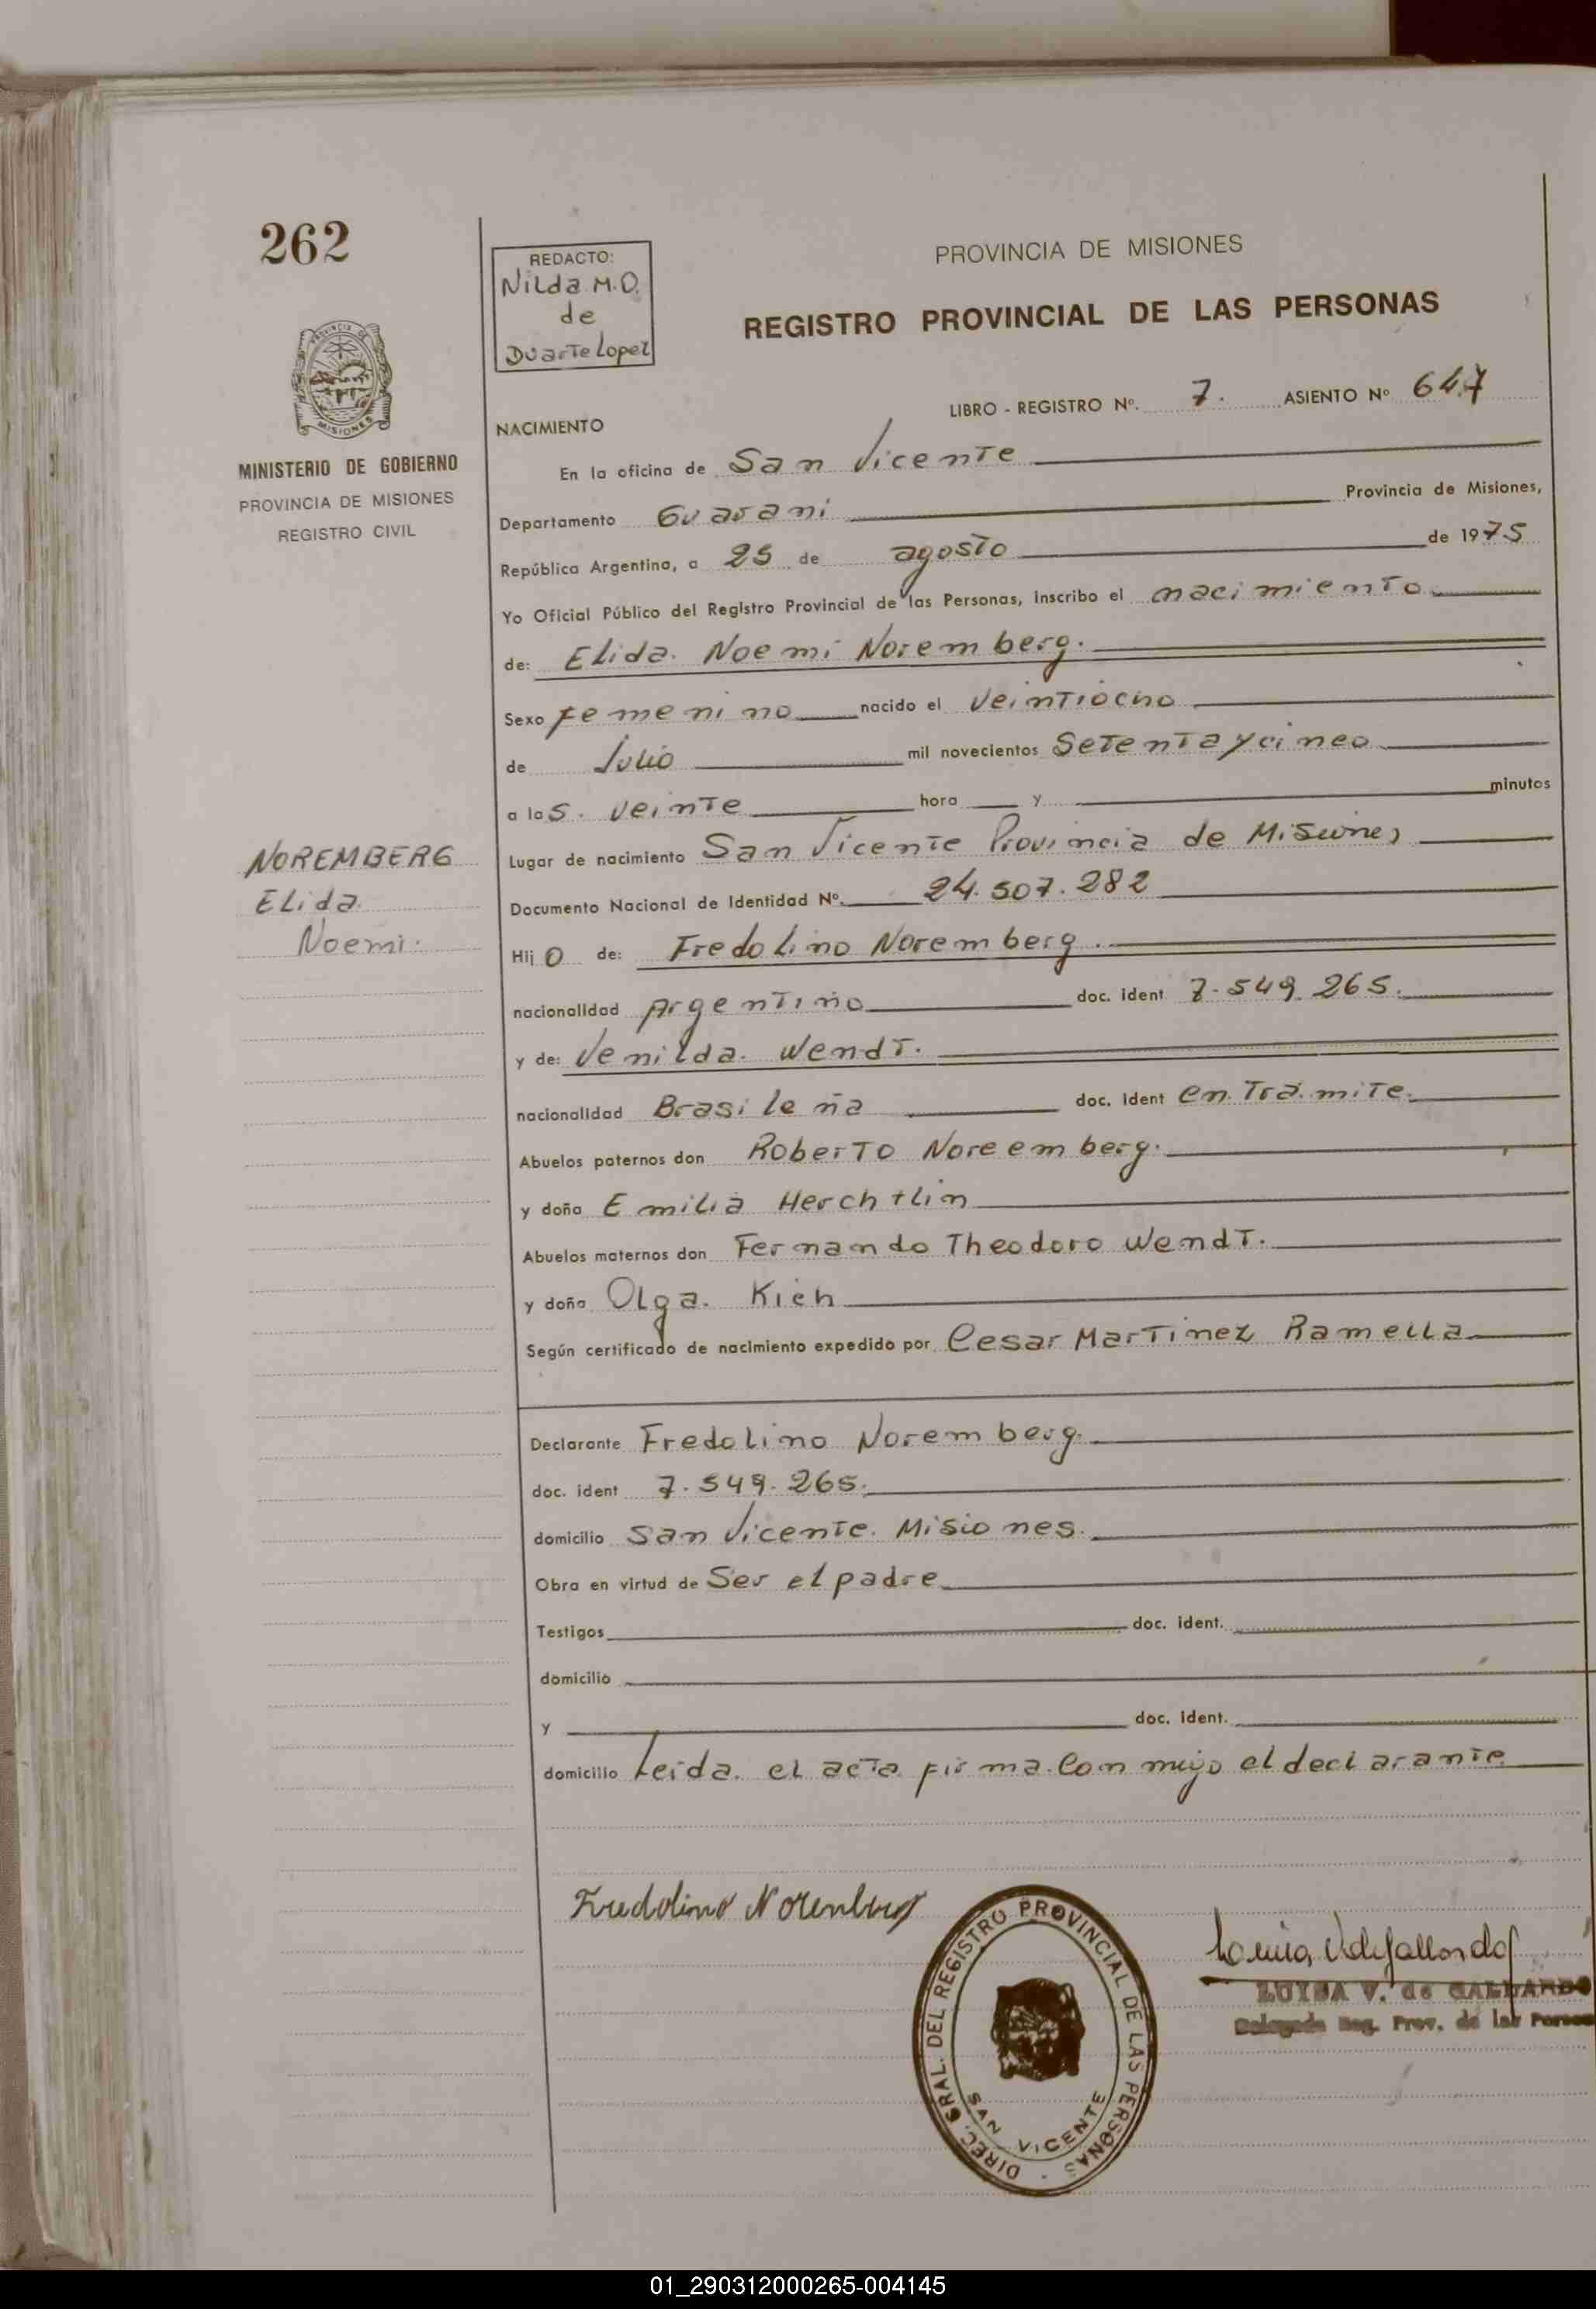 262
REDACTO:
Nilda M.O.
de
Duarte Lopez
PROVINCIA DE MISIONES
REGISTRO PROVINCIAL DE LAS PERSONAS
MINISTERIO DE GOBIERNO
PROVINCIA DE MISIONES
REGISTRO CIVIL
LIBRO - REGISTRO Nº. 7. ASIENTO Nº 647
NACIMIENTO
En la oficina de San Vicente
Departamento Guarani Provincia de Misiones,
República Argentina, a 25 de agosto de 1975
Yo Oficial Público del Registro Provincial de las Personas, inscribo el nacimiento
de: Elida. Noemi Noremberg.
Sexo femenino nacido el veintiocho
de Julio mil novecientos Setentaycinco
a las. veinte hora y minutos
Lugar de nacimiento San Vicente Provincia de Misiones
NOREMBERG
Elida
Noemi.
Documento Nacional de Identidad Nº. 24.507.282
Hijo de: Fredolino Noremberg.
nacionalidad Argentino doc. ident 7.549.265.
y de: Venilda. Wendt.
nacionalidad Brasileña doc. ident en Tramite.
Abuelos paternos don Roberto Noreemberg.
y doña Emilia Herchtlin
Abuelos maternos don Fernando Theodoro Wendt.
y doña Olga. Kich
Según certificado de nacimiento expedido por Cesar Martinez Ramella
Declarante Fredolino Noremberg.
doc. ident 7.549.265.
domicilio San Vicente. Misiones.
Obra en virtud de Ser el padre
Testigos doc. ident.
domicilio
y doc. ident.
domicilio Leida. el acta firma. Conmigo el declarante
Fredolino Norenberg
DIREC. GRAL. DEL REGISTRO PROVINCIAL DE LAS PERSONAS
SAN VICENTE
LUISA V. de GALLARDO
Delegada Reg. Prov. de las Person
01_290312000265-004145